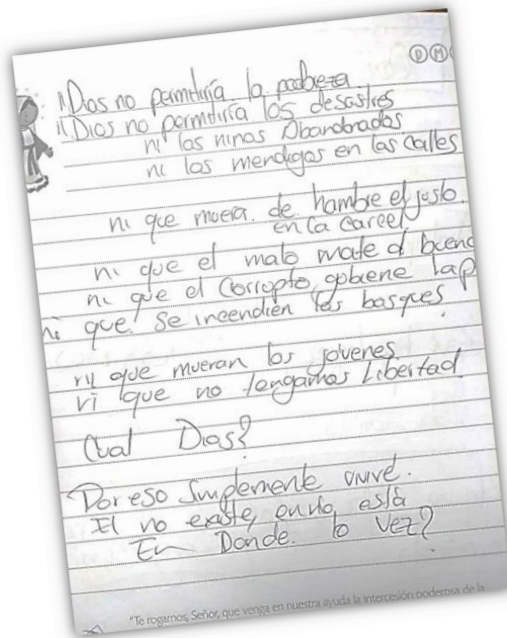 D M
¡¡Dios no permitiría la pobreza
¡¡Dios no permitiría los desastres
ni los niños Abandonados
ni los mendigos en las calles
ni que muera de hambre el justo
en la carcel
ni que el malo mate al bueno
ni que el corrupto gobierne la p
ni que se incendien los bosques
ni que mueran los jóvenes
ni que no tengamos Libertad
Cual Dios?
Por eso Simplemente viviré.
El no existe, no está
En Donde lo vez?
"Te rogamos, Señor, que venga en nuestra ayuda la intercesión poderosa de la